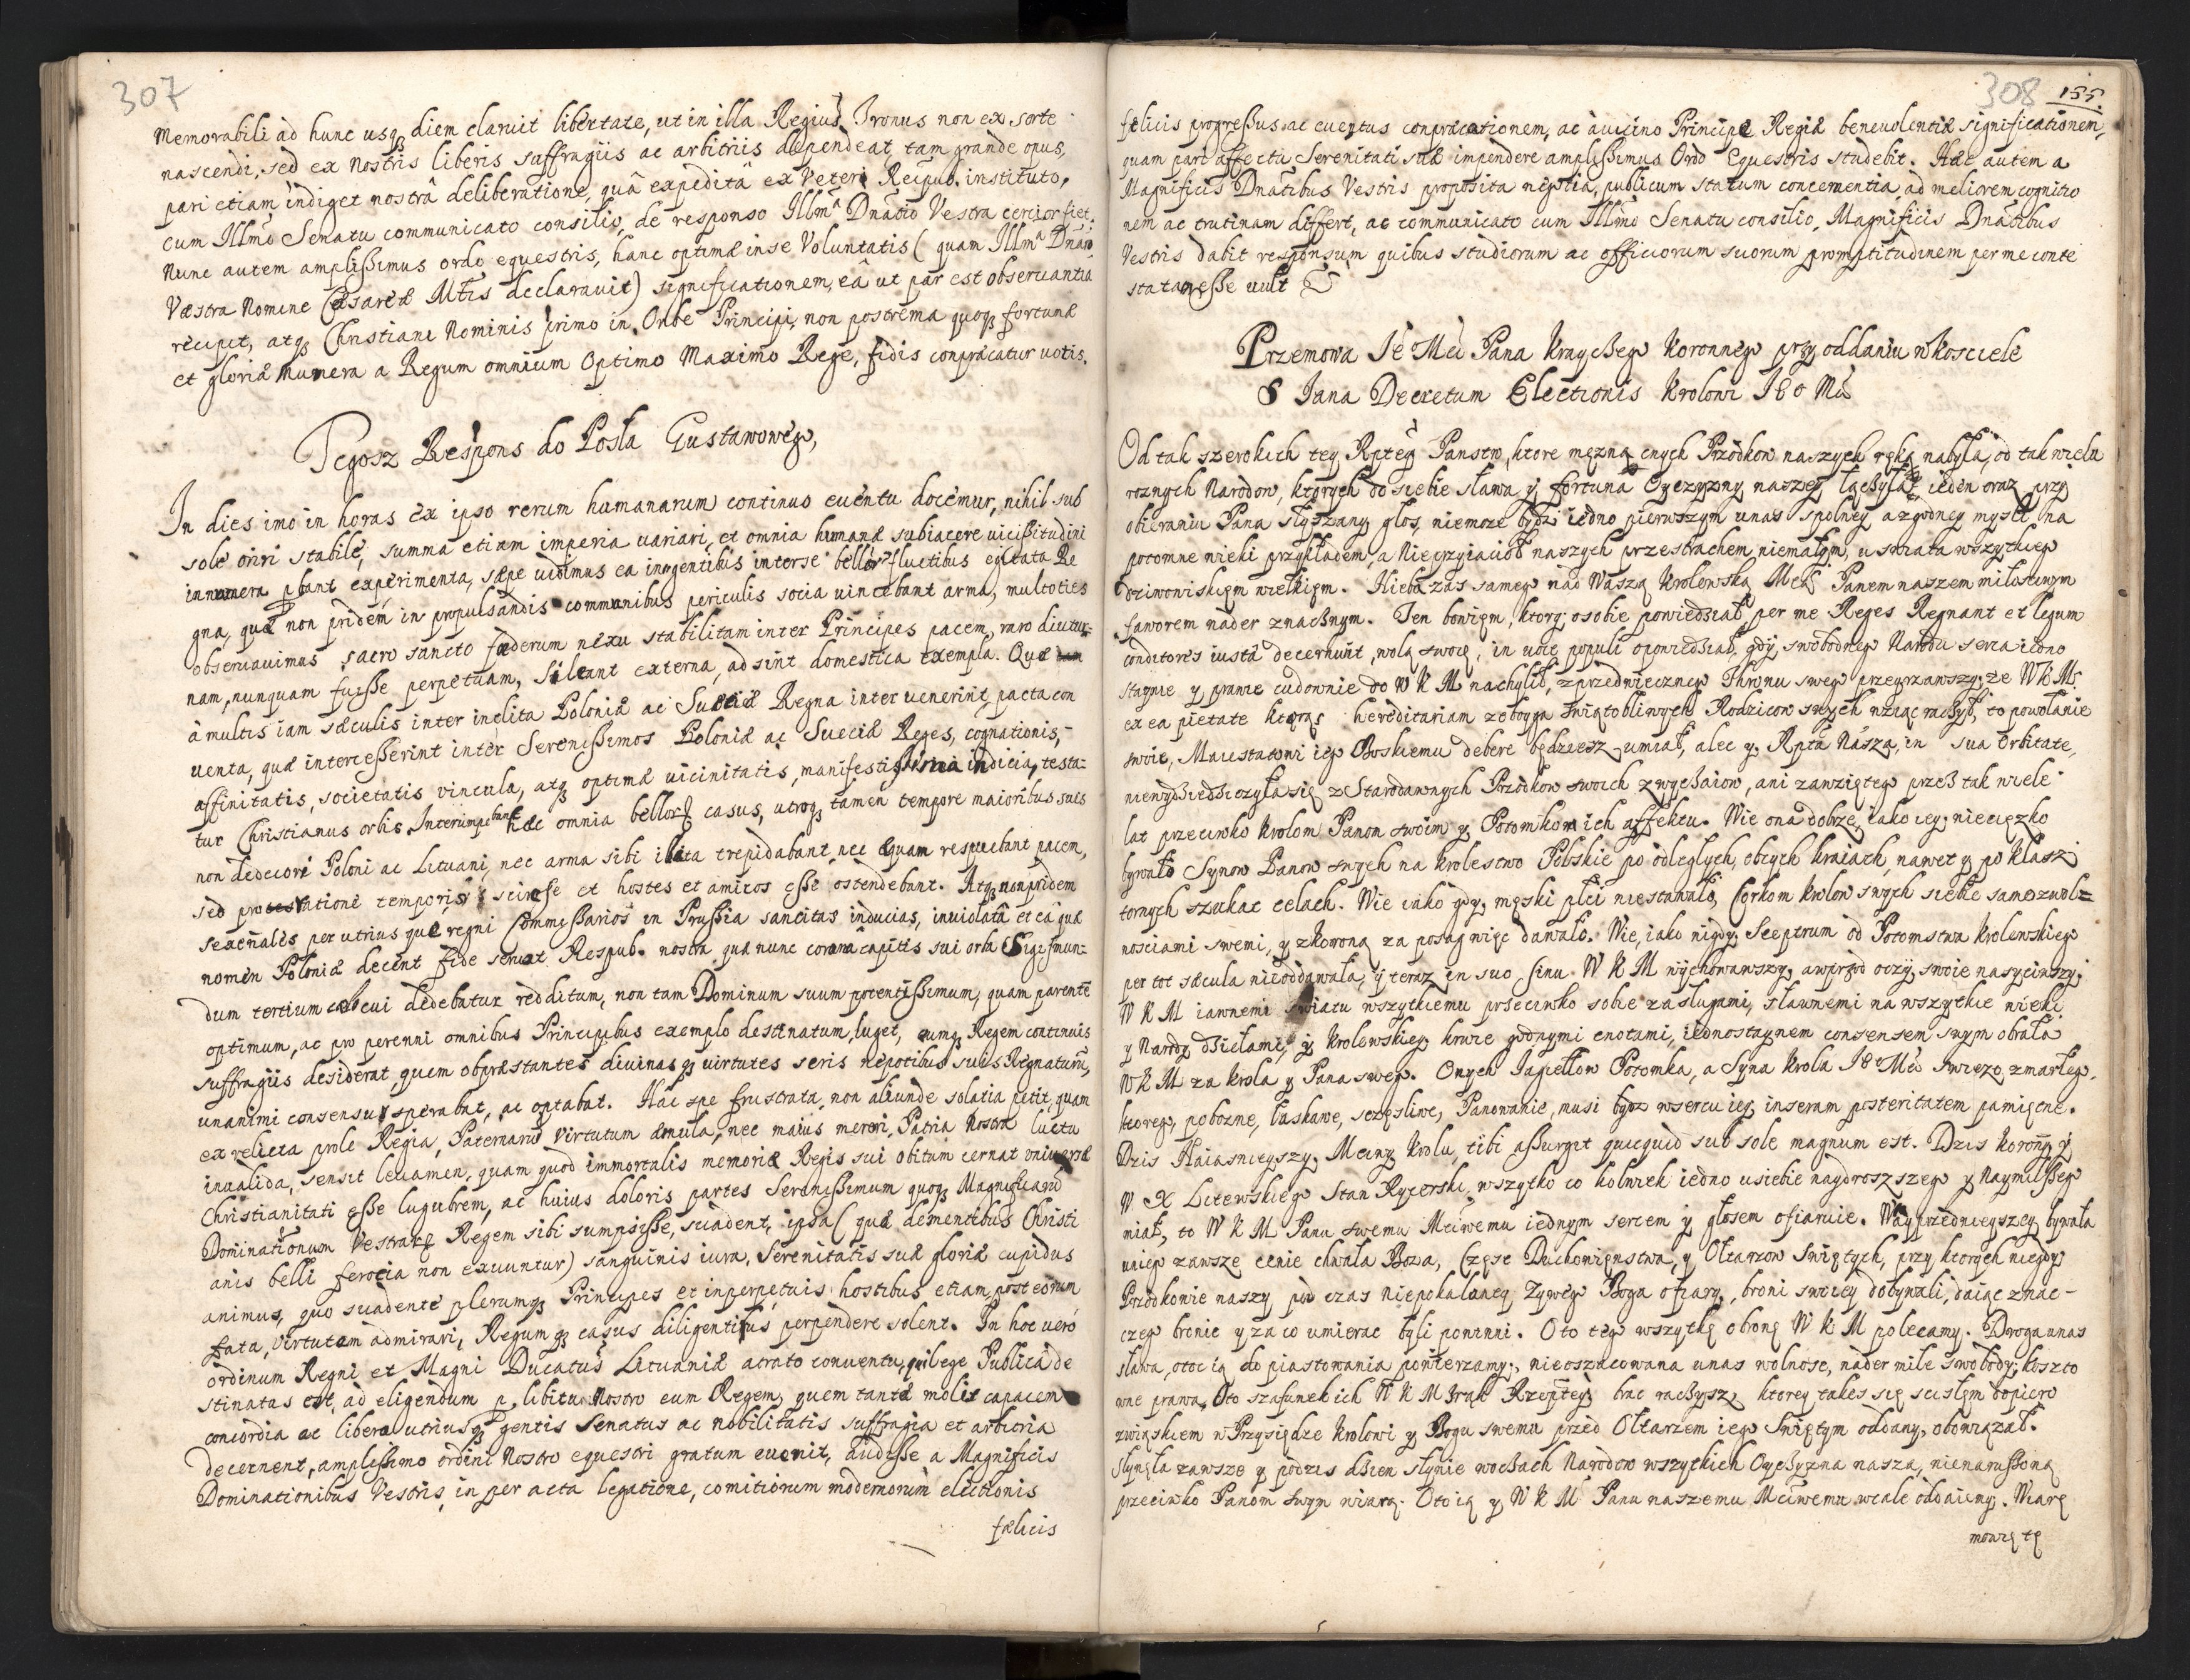 307
Memorabili ad hunc usq₃ diem claruit libertate, ut in illa Regius Tronus non ex sorte
nascendi, sed ex nostris liberis suffragiis ac arbitriis dependeat, tam grande opus,
pari etiam indiget nostrâ deliberatione, quâ expeditâ ex Veteri Reipub. instituto,
cum Illmo Senatu communicato consilio, de responso Illma Dnatio Vestra certior fiet.
Nunc autem amplißimus ordo equestris, hanc optimæ in se Voluntatis ( quam Illma Dnatio
Væstra Nomine Cæsareæ Mtis declaravit) significationem, eâ ut par est observantiâ
recipit, atq₃ Christiani Nominis primo in Orbe Principi, non postrema quoq₃ fortunæ
et gloriæ munera a Regum omnium Optimo Maximo Rege, fidis conpræcatur votis.
Tegosz Respons do Posła Gustawowego,
In dies imo in horas ex ipso rerum humanarum continuo euentu docemur, nihil sub
sole oriri stabile, summa etiam imperia uariari, et omnia humanæ subiacere uicißitudini
innumera pbant experimenta, sæpe uidimus ea ingentibus inter se bellor. fluctibus agitata Re
gna, quæ non pridem in propulsandis communibus periculis socia uincebant arma, multoties
obseruauimus sacro sancto fæderum nexu stabilitam inter Principes pacem, raro diutur=
nam, nunquam fuiße perpetuam, sileant externa, adsint domestica exempla. Quæ
à multis iam sæculis inter inclita Poloniæ ac Sueciæ Regna interuenerint pacta con
uenta, quæ interceßerint inter Serenißimos Poloniæ ac Sueciæ Reges, cognationis,
affinitatis, societatis vincula, atq₃ optimæ uicinitatis, manifestißima indicia, testa=
tur Christianus orbis. Interumpebant hæc omnia bellorum casus, utroq₃ tamen tempore maioribus suis
non dedecori Poloni ac Lituani, nec arma sibi illata trepidabant, nec æquam respuebant pacem,
sed pro ratione temporis sciuiße et hostes et amicos eße ostendebant. Atq₃ non pridem
sexennales per utrius que regni Commißarios in Prußia sancitas inducias, inuiolatâ et eâ quæ
nomen Poloniæ decent fide seruat Respub. nostra, quæ nunc corona capitis sui orba Sigismun=
dum tertium cælo cui debebatur redditum, non tam Dominum suum potentißimum, quam parentem
optimum, ac pro perenni omnibus Principibus exemplo destinatum, luget, eumq₃ Regem continuis
suffragiis desiderat, quem ob præstantes diuinas q₃ uirtutes seris nepotibus suis Regnaturum,
unanimi consensu sperabat, ac optabat. Hac spe frustrata, non aliunde solatia petit, quam
ex relicta prole Regia, Paternarum virtutum æmula, nec maius mereri, Patria nostra luctu
inualida, sensit leuamen, quam quod immortalis memoriæ Regis sui obitum cernat uniuersæ
Christianitati eße lugubrem, ac huius doloris partes Serenißimum quoq₃ Magnificarum
Dominationum Vestrarum Regem sibi sumpsiße, suadent, ipsa ( quæ dementibus Christi
anis belli ferocia non exuuntur) sanguinis iura, Serenitatis suæ gloriæ cupidus
animus, quo suadente plerumq₃ Principes et in perpetuis hostibus etiam post eorum
fata, virtutem admirari, Regum q₃ casus diligentius perpendere solent. In hoc uero
ordinum Regni et Magni Ducatus Lituaniæ acrato conuentu, qui lege Publica de
stinatus est, ad eligendum p. libitu nostro eum Regem, quem tantæ molis capacem
concordia ac libera utriusq₃ gentis Senatus ac nobilitatis suffragia et arbitria
decernent, amplißimo ordini nostro equestri gratum euenit, audiße a Magnificis
Dominationibus Vestris, in per acta legatione, comitiorum modernorum electionis
fælicis
308 155.
fælicis progreßus ac euentus conpræcationem, ac a uicino Principe Regiæ beneuolentiæ significationem,
quam pari affectu Serenitati suæ impendere amplißimus Ordo Equestris studebit. Hæc autem a
Magnificis Dnatibus Vestris proposita negotia, publicum statum concernentia, ad meliorem cognitio
nem ac trutinam differt, ac communicato cum Illmo Senatu consilio, Magnificis Dnatibus
Vestris dabit responsum quibus studiorum ac officiorum suorum promptitudinem per me conte
statam eße uult
Przemowa Je Mci Pana Krayczego Koronnego przy oddaniu w Kosciele
S Jana Decretum Electionis Krolowi Je⁰ Mci
Od tak szerokich tey Rptey Panstw, ktore mężną cnych Przodkow naszych ręką nabyła, od tak wielu
roznych Narodow, ktorych do siebie sława y fortuna Oyczyzny naszey łączyła, ieden oraz przy
obieraniu Pana słyszany głos, niemoze bydz iedno pierwszym unas spolney a zgodney mysli na
potomne wieki przykładem, a Nieprzyiacioł naszych przestrachem niemałym, u swiata wszytkiego
dziwowiskiem wielkiem. Nieba zas samego nad Waszą Krolewską Mcią Panem naszem miłosciwym
faworem nader znacznym. Ten bowiem, ktory o sobie powiedział, per me Reges Regnant et legum
conditores iusta decernunt, wolą swoię, in uoce populi opowiedział, gdy swobodnego Narodu serca iedno
staynie y prawie cudownie do W K M nachylił, z przedwiecznego Thronu swego przeyrzawszy, że W K M.
ex ea pietate ktorąs hereditariam ze boyga swiątobliwych Rodzicow swych wziąc raczył, to powołanie
swoie, Maiestatowi iego Boskiemu debere będziesz umiał, alec y Rpta Nasza, in sua Orbitate,
niewydziedziczyła się z Starodawnych Przodkow swoich zwyczaiow, ani zawziętego przez tak wiele
lat przeciwko Krolom Panom swoim y Potomkom ich affektu. Wie ona dobrze, iako iey, nieciężko
bywało Synow Panow swych na Krolestwo Polskie po odległych, obcych kraiach, nawet y po klasz
tornych szukac celach. Wie iako gdy, męski płci niestawało, Corkom Krolow swych siebie samą z wol=
nosciami swemi, y z koroną za posag więc dawało. Wie, iako nigdy Sceptrum od Potomstwa Krolewskiego
per tot sæcula nieoddawała, y teraz in suo sinu W K M wychowawszy, a wprzod oczy swoie nasyciwszy,
W K M iawnemi swiatu wszytkiemu przeciwko sobie zasługami, sławnemi na wszytkie wieki
y Narody dziełami, y Krolewskiey krwie godnymi cnotami, iednostaynem consensem swym obrała
W K M za Krola y Pana swego. Onych Jagiełłow Potomka, a Syna Krola Je⁰ Mci swiezo zmarłego,
ktorego, pobozne, łaskawe, szczęsliwe, Panowanie, musi bydz w sercu iey, in seram posteritatem pamiętne.
Dzis Naiasnieyszy, Mciwy Krolu, tibi aßurget quicquid sub sole magnum est. Dzis Koronny y
W X Litewskiego Stan Rycerski, wszytko co kolwiek iedno u siebie naydroszszego y Naymilßego
miał, to W K M Panu swemu Mciwemu iednym sercem y głosem ofiaruie. Wayprzednieyszey bywała
uniego zawsze cenie chwała Boza, Część Duchowieństwa, y Ołtarzow Swiętych, przy ktorych niegdy
Przodkowie naszy pod czas niepokalaney Zywego Boga ofiary, broni swoiey dobywali, daiąc znac -
czego bronic y za co umierac byli powinni. Oto tego wszytkę obronę W K M polecamy. Droga unas
sława, otoc ią do piastowania powierzamy, nieoszacowana unas wolnosc, nader miłe swobody, koszto
wne prawa, Oto szafunek ich W K M z rąk Rzeptey brac raczysz, ktorey takes się scisłem dopiero
związkiem w Przysiędze Krolowi y Bogu swemu przed Ołtarzem iego Swiętym oddany, obowiązał.
Słynęła zawsze y podzis dzien słynie w oczach Narodow wszytkich Oyczyzna nasza, nienarußoną
przeciwko Panom swym wiarą. Oto ią y W K M Panu naszemu Mciwemu wcale oddaiemy. Wiarę
mowię tę